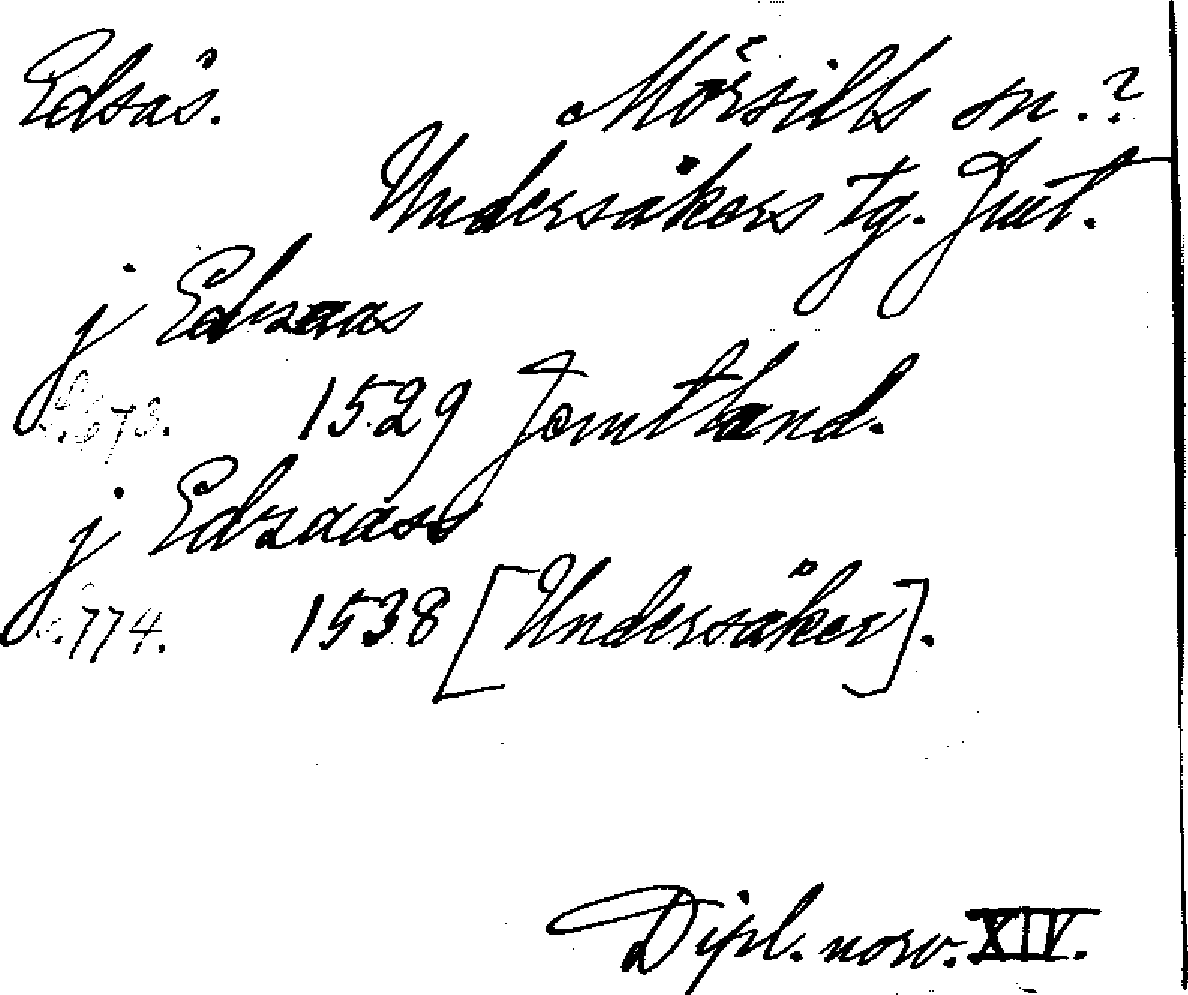 Edsås. Mörsills sn.?
Undersåkers tg. Jmt.
j Edzaas
s.673. 1529 Jemthand.
j Edzaass
s.774. 1538 [Undersåker].
Dipl. norv. XIV.